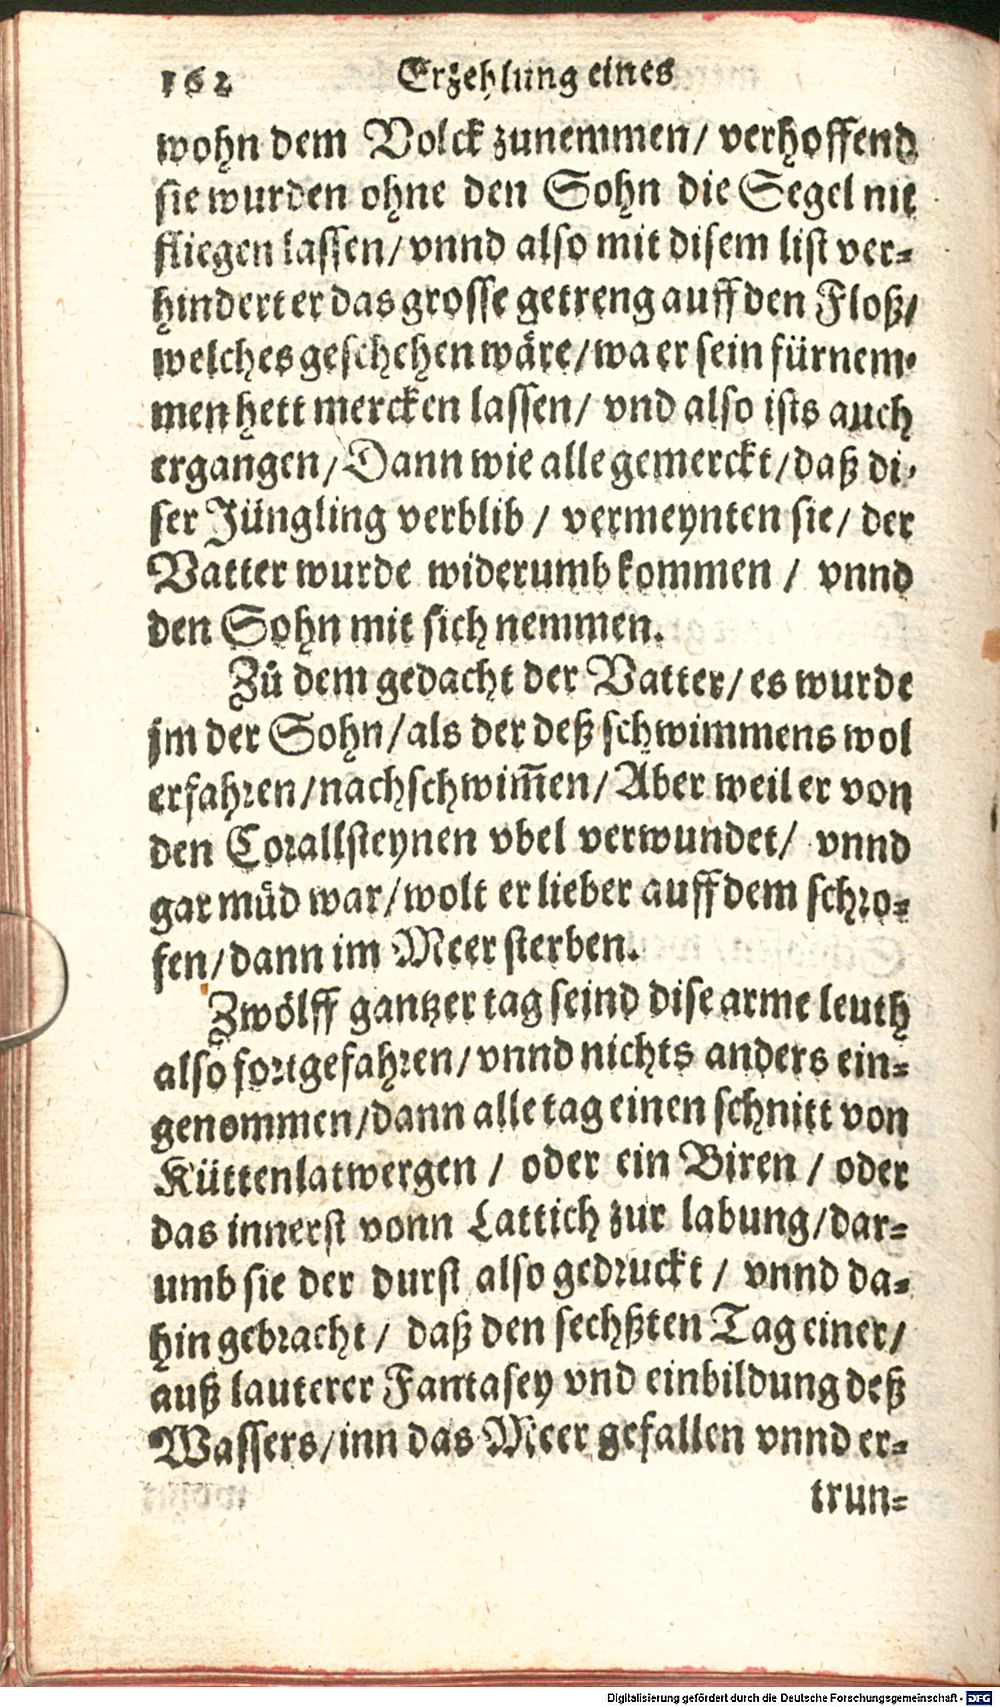 162 Erzehlung eines
wohn dem Volck zunemmen/ verhoffend
sie wurden ohne den Sohn die Segel nit
fliegen lassen/ vnnd also mit disem list ver-
hindert er das grosse getreng auff den Floß/
welches geschehen wäre/ wa er sein fürnem-
men hett mercken lassen/ vnd also ists auch
ergangen/ Dann wie alle gemerckt/ daß di-
ser Jüngling verblib / vermeynten sie/ der
Vatter wurde widerumb kommen / vnnd
den Sohn mit sich nemmen.
Zů dem gedacht der Vatter/ es wurde
jm der Sohn/ als der deß schwimmens wol
erfahren/ nachschwim̃en/ Aber weil er von
den Corallsteynen vbel verwundet/ vnnd
gar müd war/ wolt er lieber auff dem schro-
fen/ dann im Meer sterben.
Zwölff gantzer tag seind dise arme leuth
also fortgefahren/ vnnd nichts anders ein-
genommen/ dann alle tag einen schnitt von
Küttenlatwergen / oder ein Biren / oder
das innerst vonn Lattich zur labung/ dar-
umb sie der durst also gedruckt / vnnd da-
hin gebracht/ daß den sechßten Tag einer/
auß lauterer Fantasey vnd einbildung deß
Wassers/ inn das Meer gefallen vnnd er-
trun-
Digitalisierung gefördert durch die Deutsche Forschungsgemeinschaft - DFG